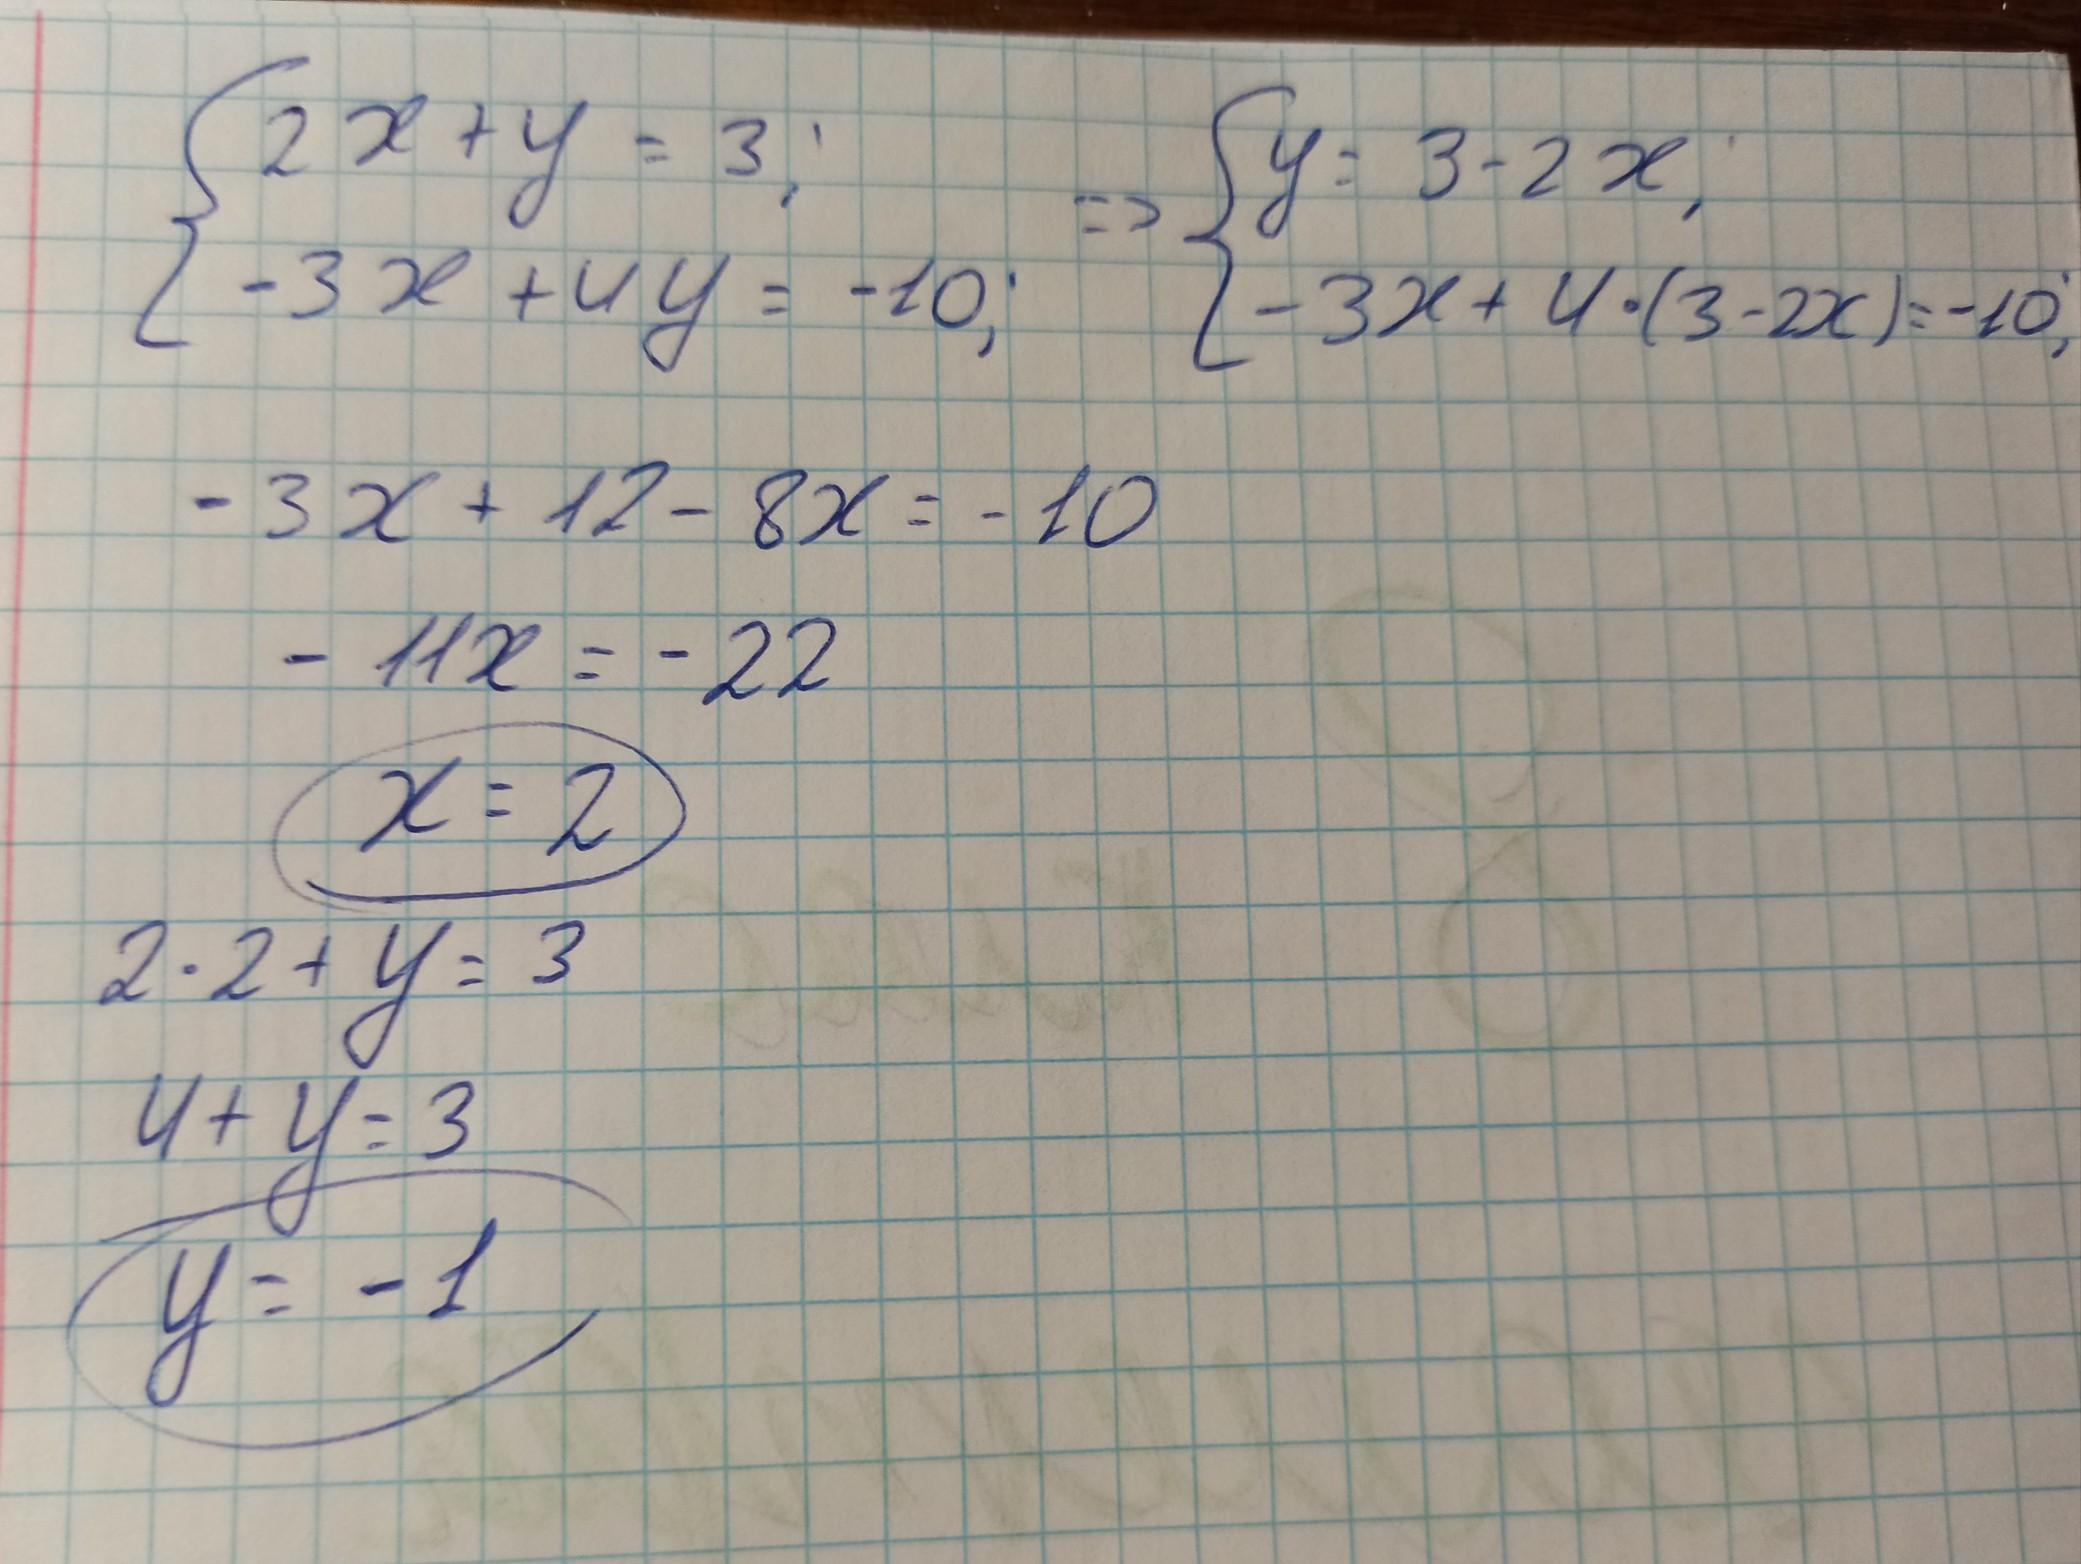 { 2x + y = 3; => { y = 3 - 2x;
-3x + 4y = -10; -3x + 4·(3-2x) = -10;
-3x + 12 - 8x = -10
-11x = -22
x = 2
2·2 + y = 3
4 + y = 3
y = -1